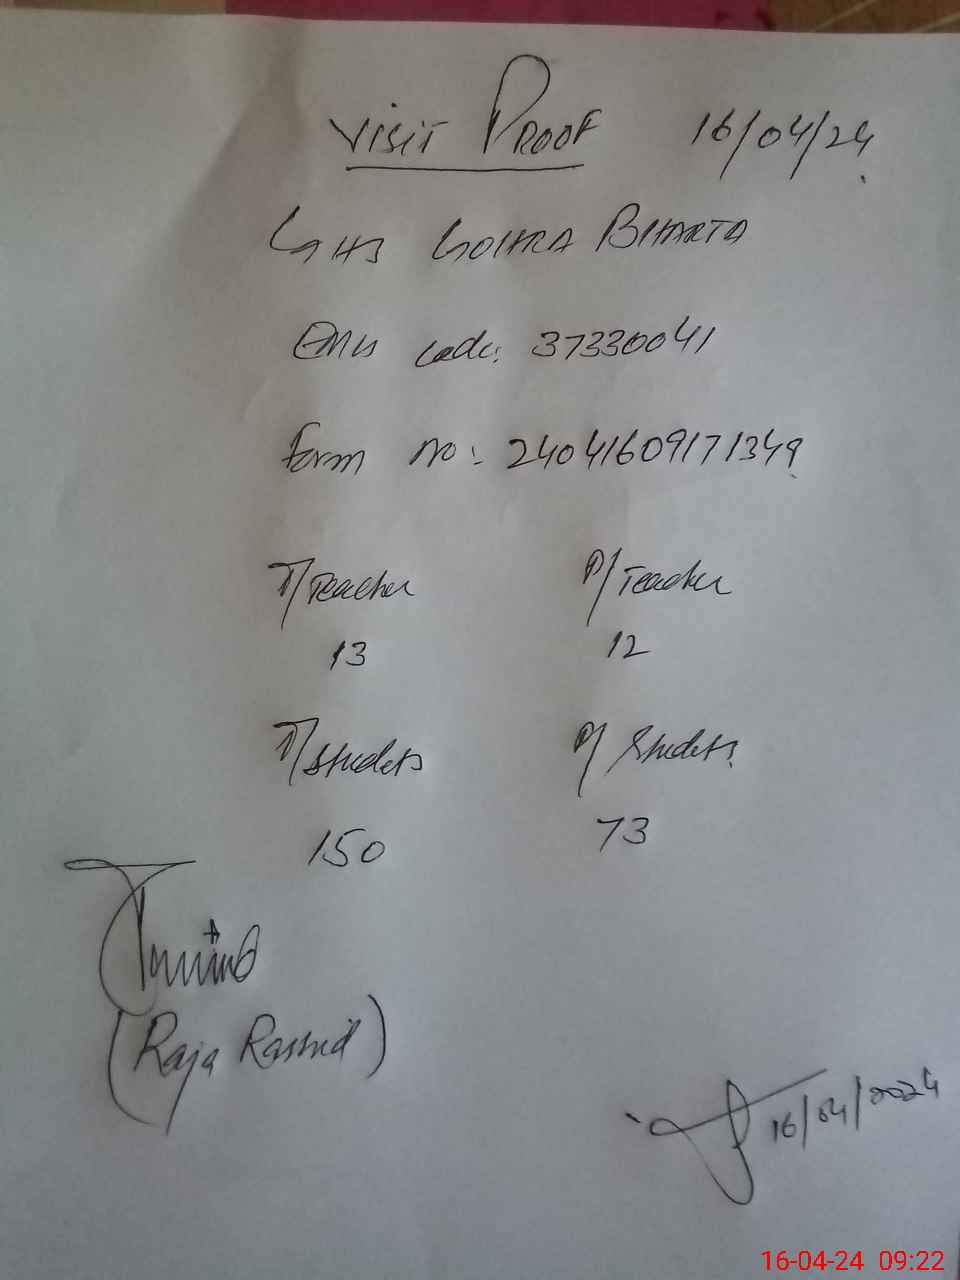 VISIT PROOF 16/04/24
GHS GOHRA BHARTA
EMIS code: 37330041
Form no: 24041609171349
T/Teacher P/Teacher
13 12
T/Students P/Students
150 73
(Raja Rashid)
16/04/2024
16-04-24 09:22